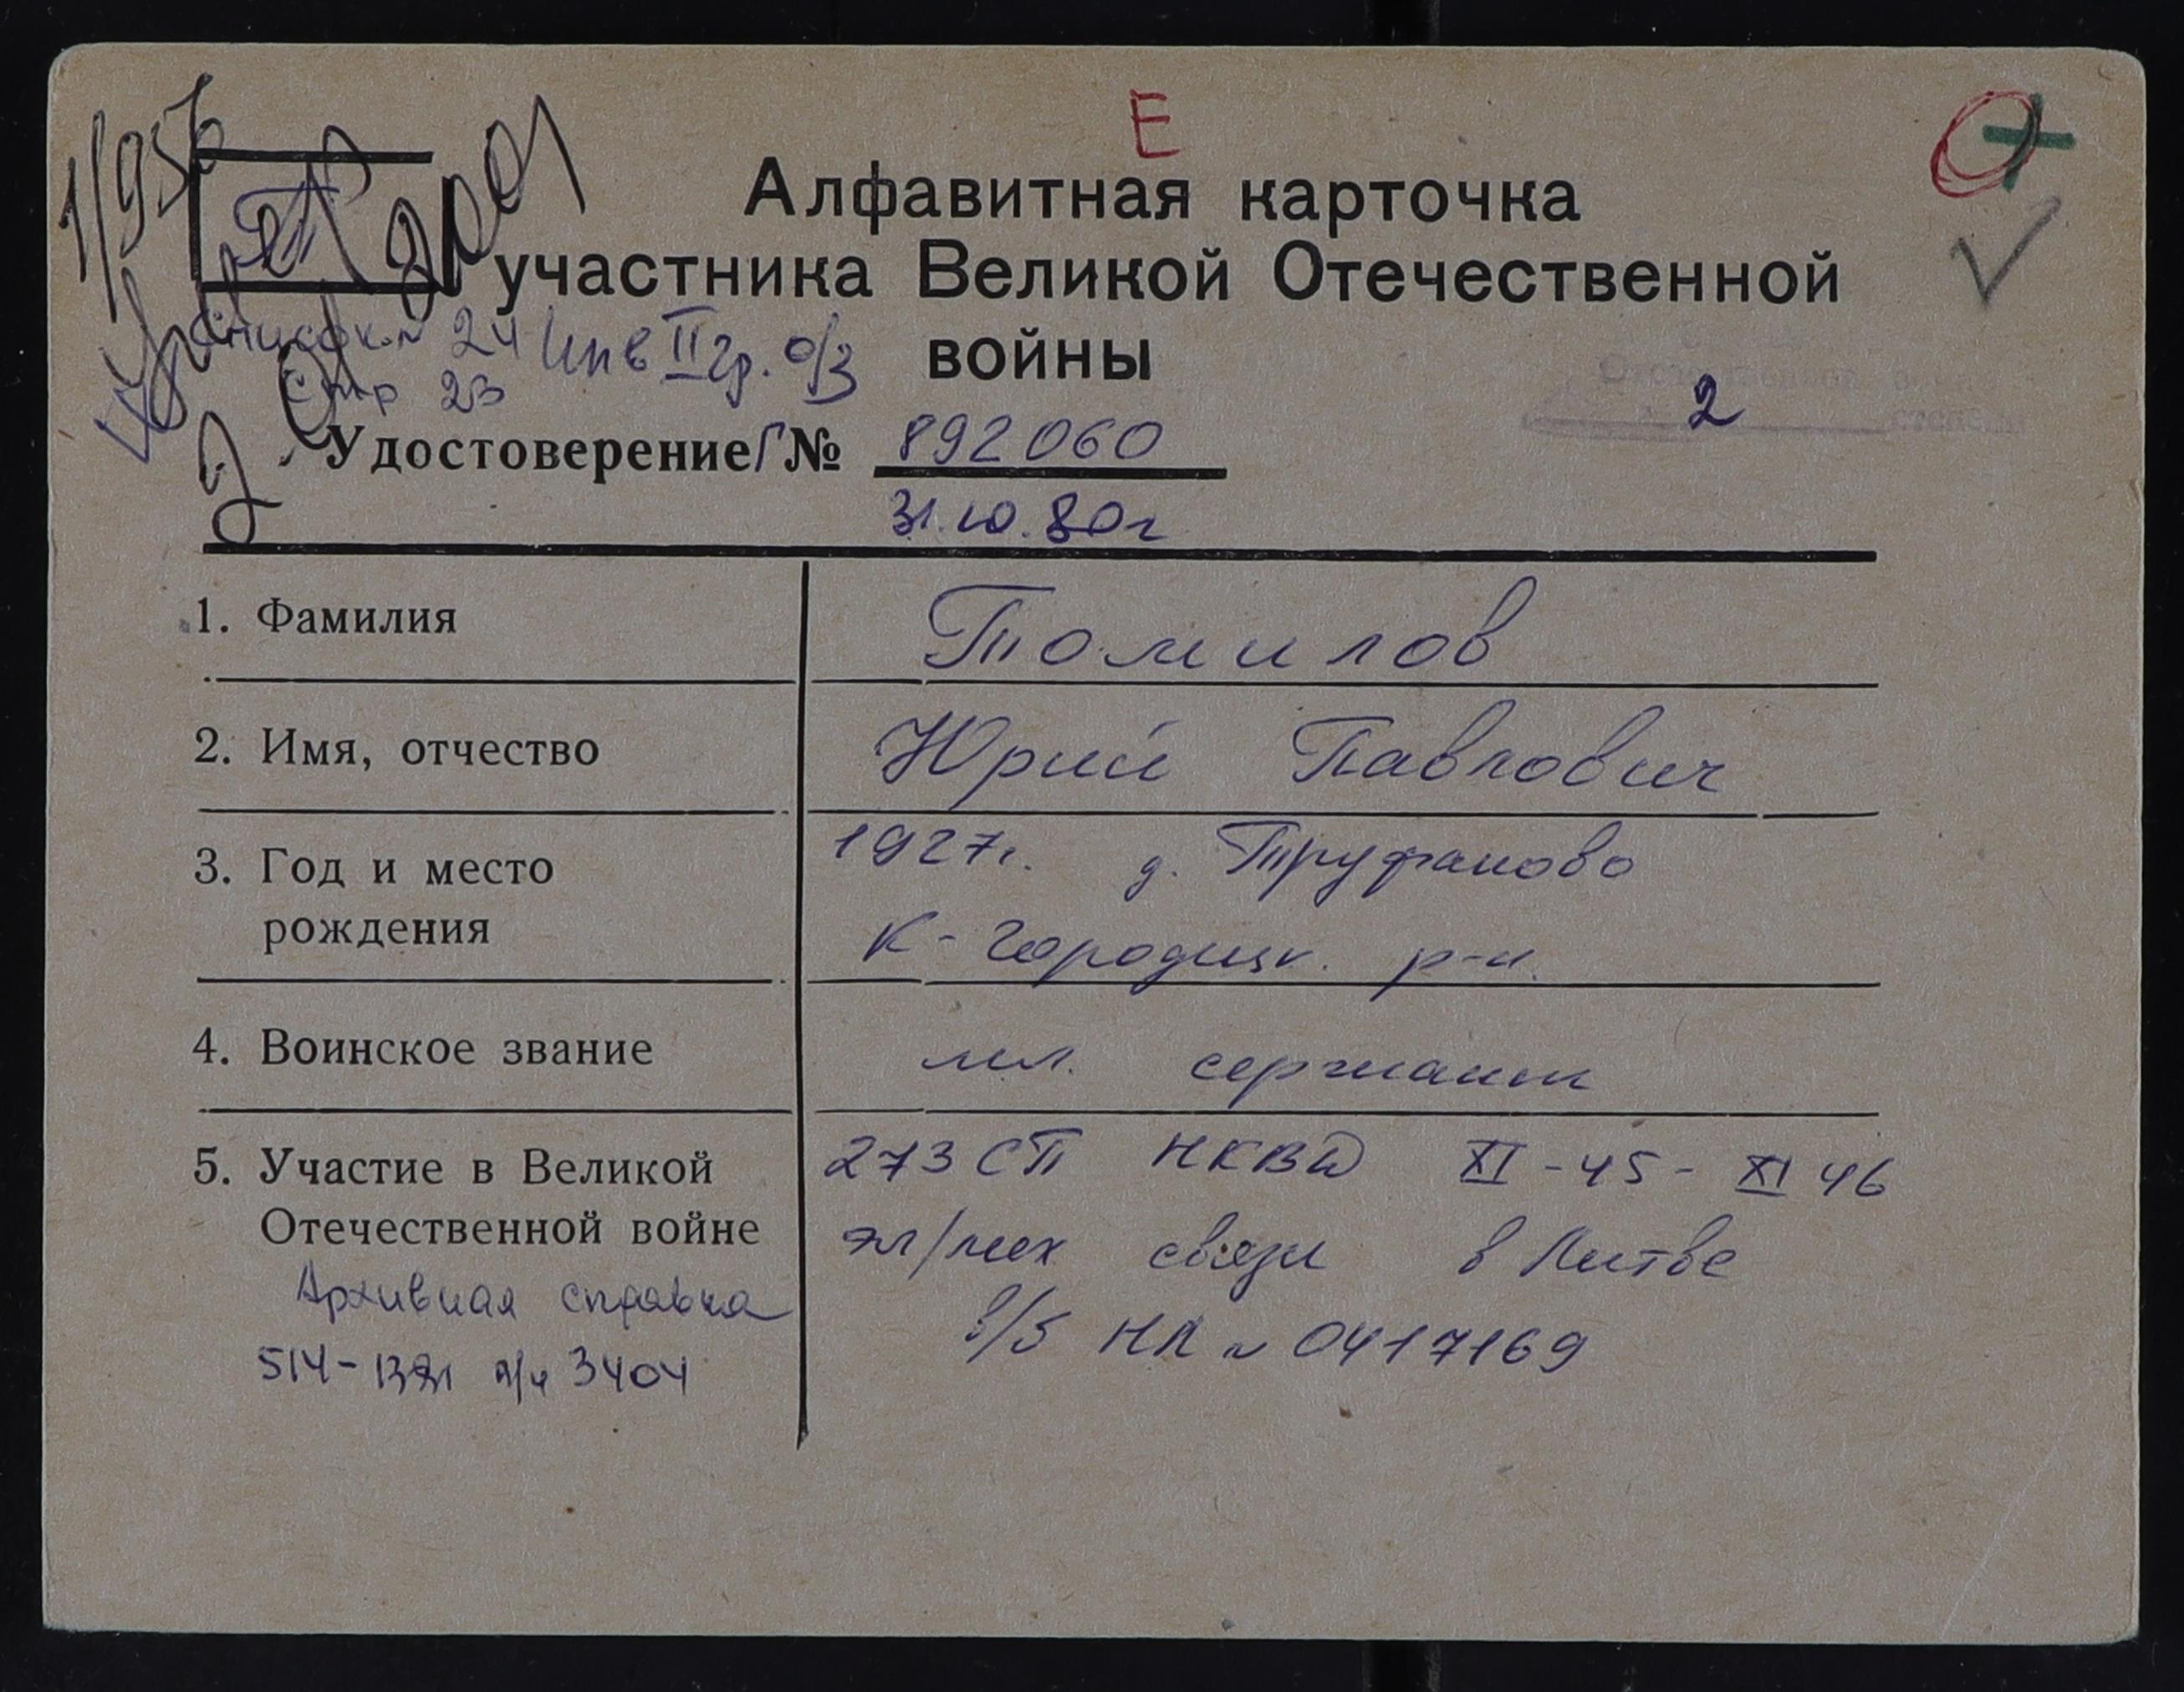 Е
Алфавитная карточка
участника Великой Отечественной
войны
Т
Список № 24 Инв II гр. о/з
Стр 23
2
Удостоверение Г №
892060
31.10.80г
1. Фамилия
Томилов
2. Имя, отчество
Юрий Павлович
3. Год и место
рождения
1927г. д. Труфаново
К-Городищ. р-н.
4. Воинское звание
мл. сержант
5. Участие в Великой
Отечественной войне
273 СП НКВД XI-45 - XI 46
эл/мех связи в Литве
в/б НЛ № 0417169
Архивная справка
в/ч 3404